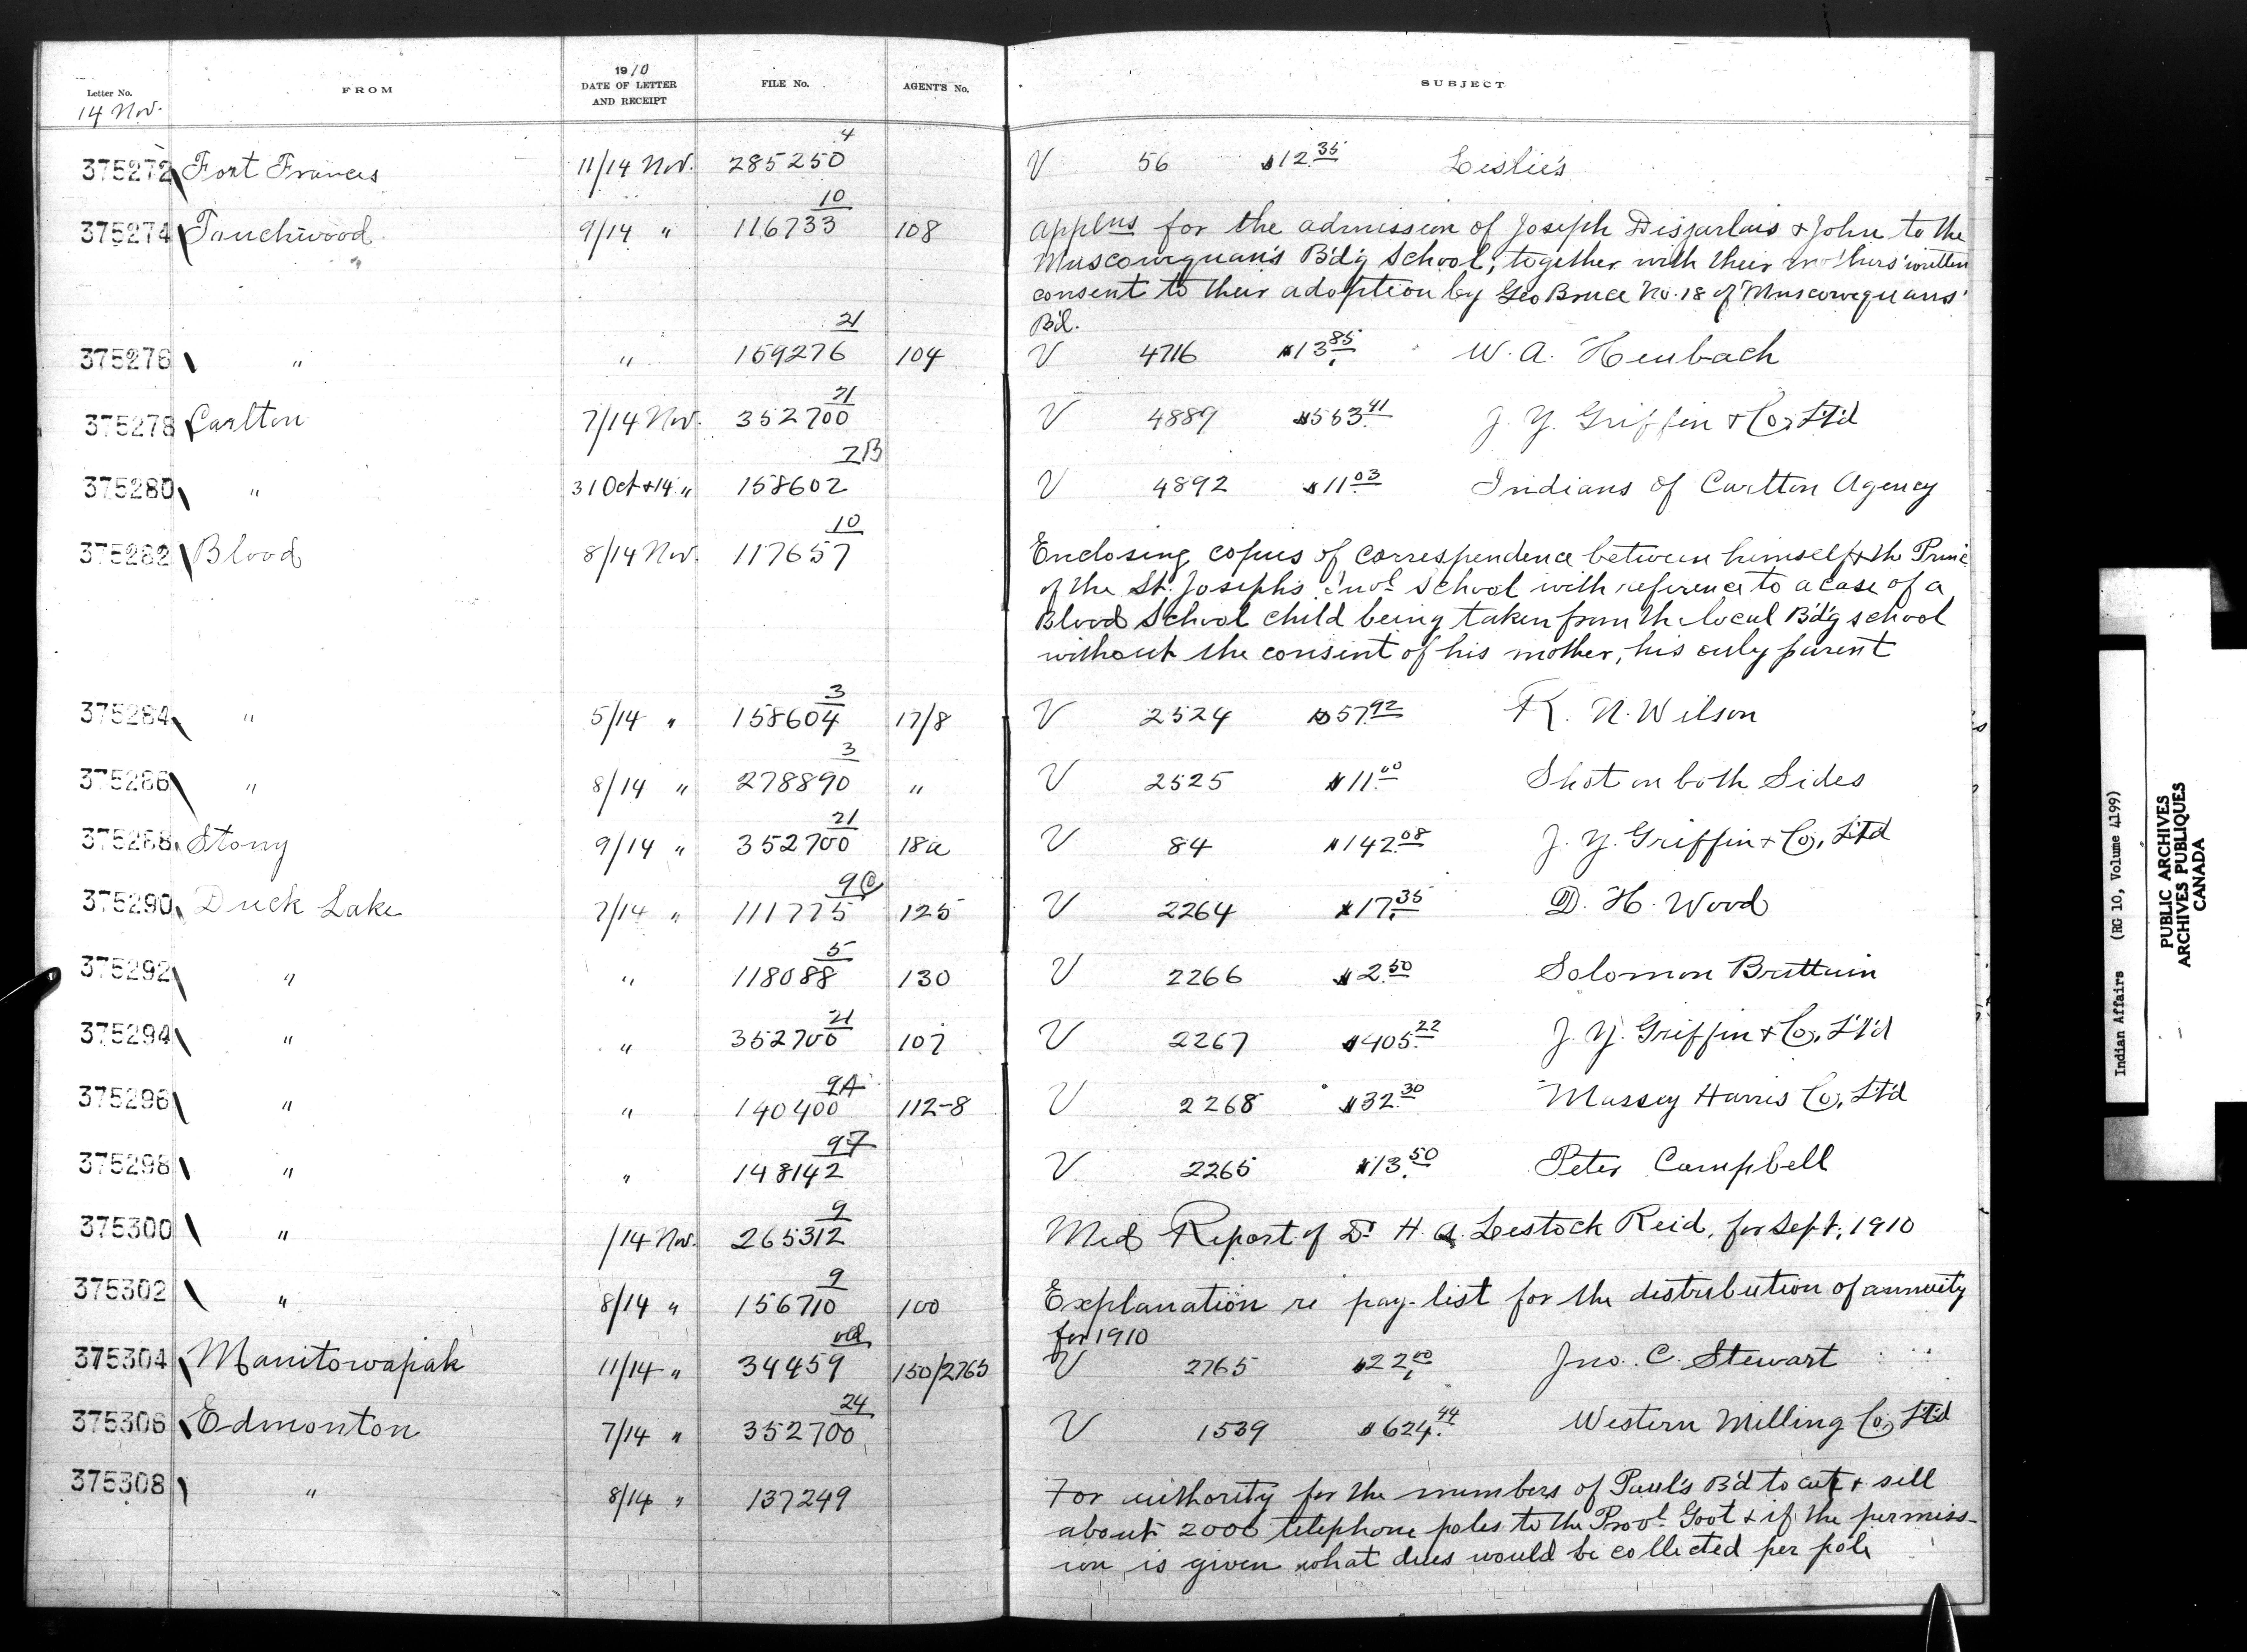 Letter No. FROM 1910 DATE OF LETTER AND RECEIPT FILE No. AGENT'S No. SUBJECT
14 Nov.
375272 Fort Frances 11/14 Nov. 285250/4 V 56 $12.35 Leslie's
375274 Touchwood 9/14 " 116733/10 108 Applns for the admission of Joseph Desjarlais & John to the
Muscowequan's B'd'g School, together with their mothers' written
consent to their adoption by Geo Bruce No. 18 of Muscowequans'
B'd.
375276 " " 159276/21 104 V 4716 $13.85 W. A. Heubach
375278 Carlton 7/14 Nov. 352700/21 V 4889 $553.41 J. Y. Griffin & Co, Lt'd
375280 " 31 Oct & 14 " 158602/7B V 4892 $11.03 Indians of Carlton Agency
375282 Blood 8/14 Nov. 117657/10 Enclosing copies of correspondence between himself & the Princ
of the St. Josephs Indl School with reference to a case of a
Blood School child being taken from the local B'd'g school
without the consent of his mother, his only parent
375284 " 5/14 " 158604/3 17/8 V 2524 $57.92 R. N. Wilson
375286 " 8/14 " 278890/3 " V 2525 $11.00 Shot on both Sides
375288 Stony 9/14 " 352700/21 18a V 84 $142.08 J. Y. Griffin & Co, Lt'd
375290 Duck Lake 7/14 " 111775/9C 125 V 2264 $17.35 D. H. Wood
375292 " " 118088/5 130 V 2266 $2.50 Solomon Brittain
375294 " " 352700/21 107 V 2267 $405.22 J. Y. Griffin & Co, Lt'd
375296 " " 140400/9A 112-8 V 2268 $32.30 Massey Harris Co, Lt'd
375298 " " 148142/97 V 2265 $13.50 Peter Campbell
375300 " /14 Nov. 265312/9 Med Report of Dr H. A. Lestock Reid, for Sept, 1910
375302 " 8/14 " 156710/9 100 Explanation re pay-list for the distribution of annuity
for 1910
375304 Manitowapah 11/14 " 34459/old 150/2765 V 2765 $22.00 Jno. C. Stewart
375306 Edmonton 7/14 " 352700/24 V 1539 $624.44 Western Milling Co, Lt'd
375308 " 8/14 " 137249 For authority for the members of Paul's B'd to cut & sell
about 2000 telephone poles to the Provl Govt & if the permiss-
ion is given what dues would be collected per pole
Indian Affairs (RG 10, Volume 4199)
PUBLIC ARCHIVES
ARCHIVES PUBLIQUES
CANADA